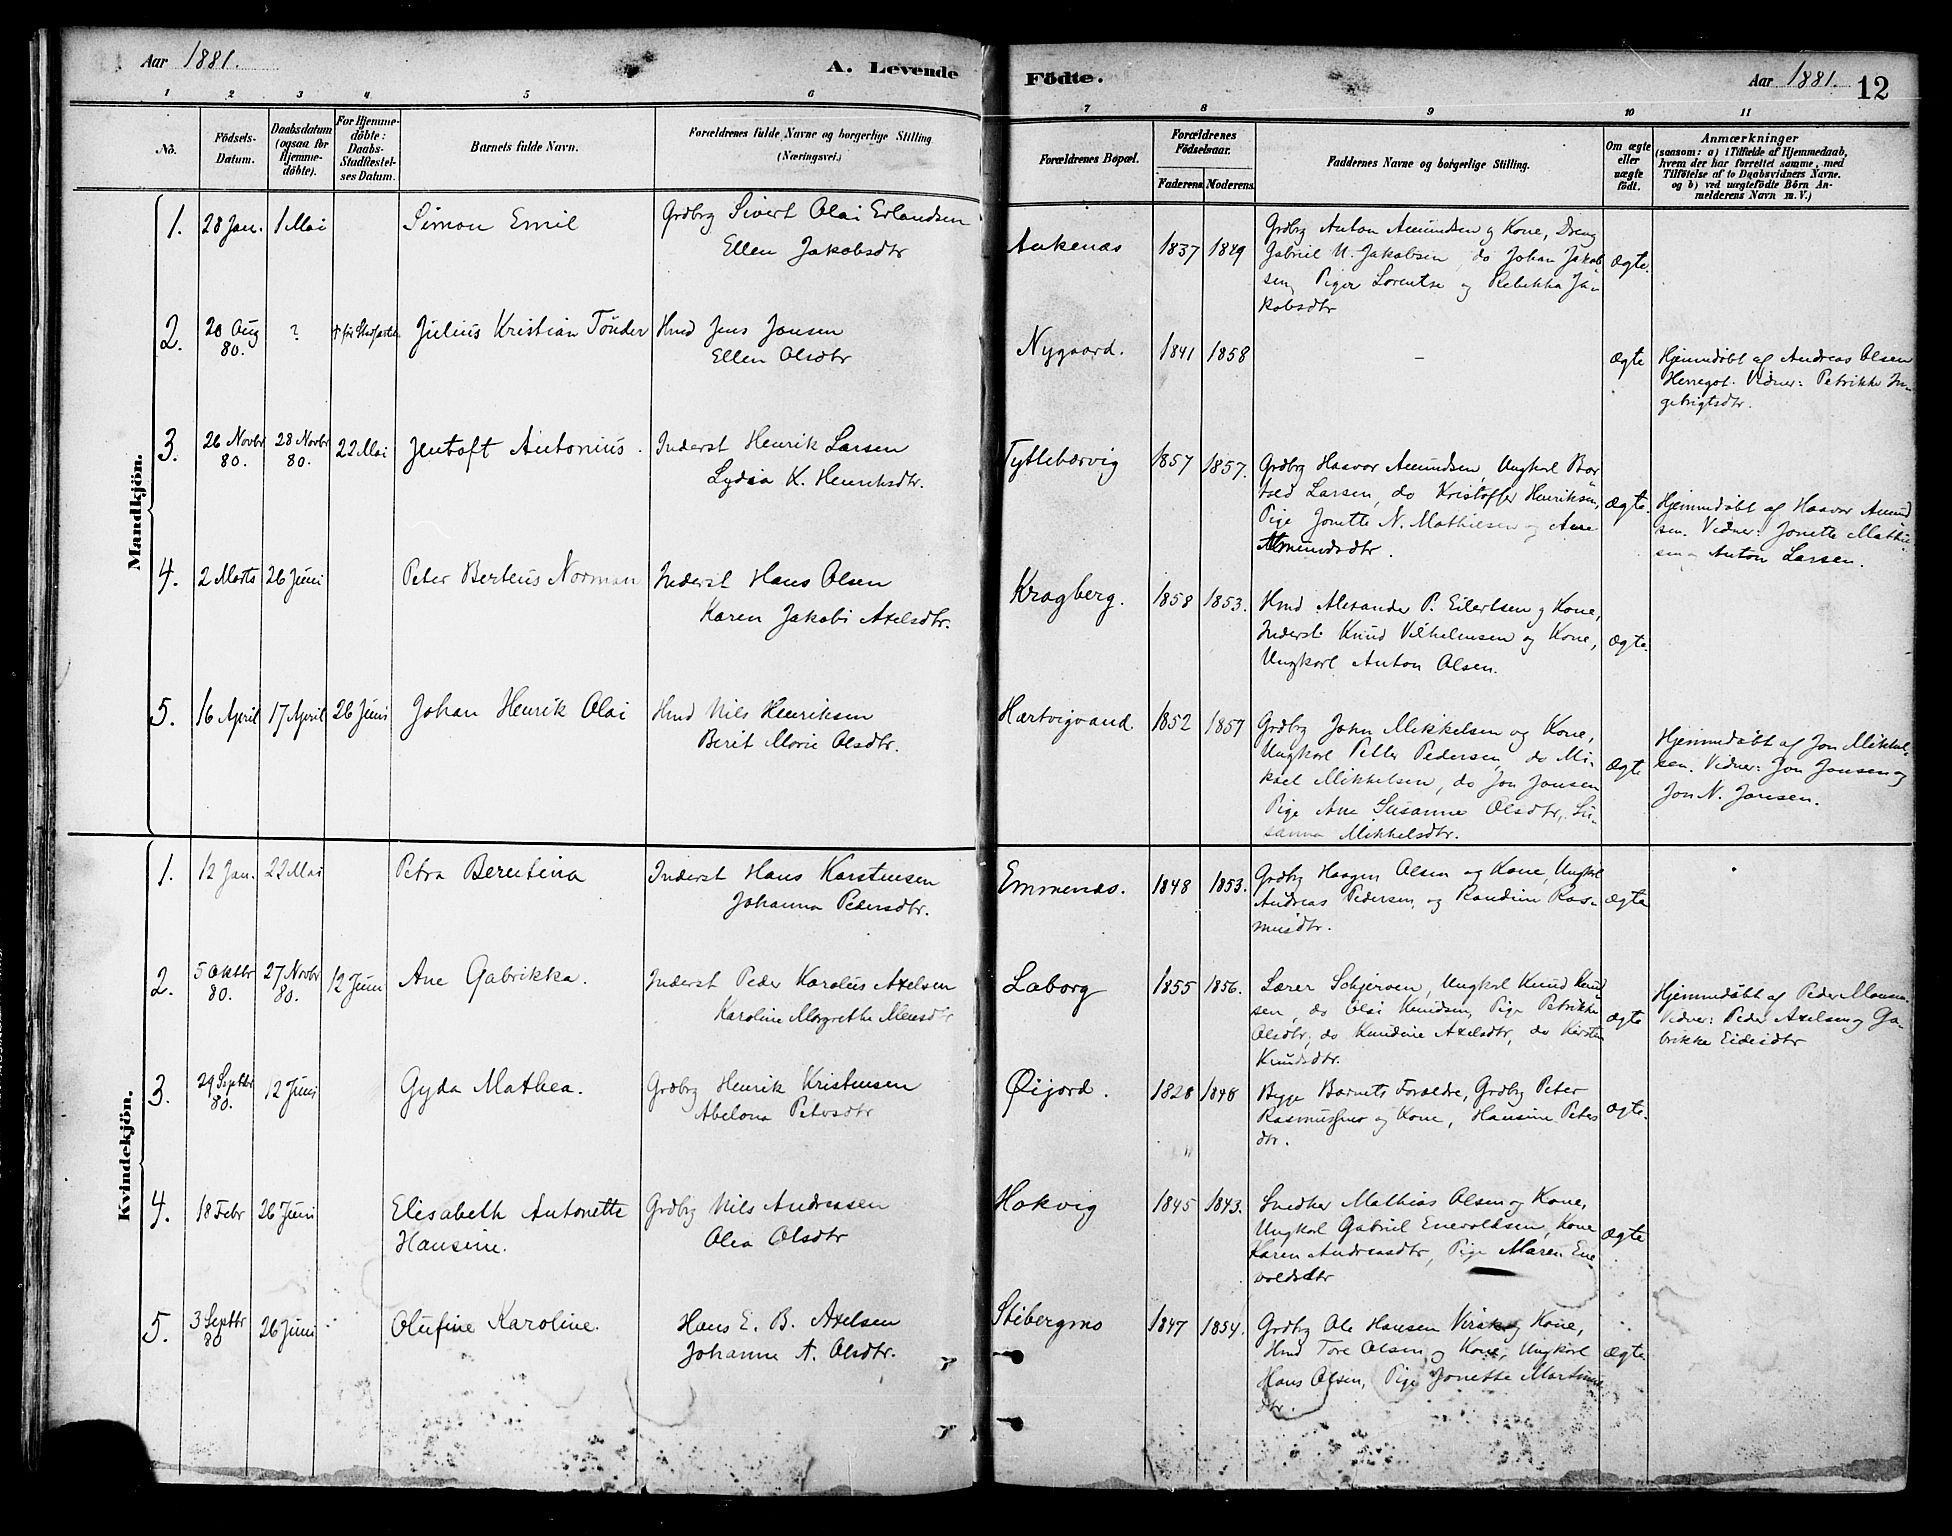 Aar 1881.
A. Levende
Födte.
Aar 1881.
12
1 2 3 4 5 6
7 8 9 10 11
Nô.
Födsels-
Datum.
Daabsdatum
(ogsaa för
Hjemme-
döbte).
For Hjemme-
döbte:
Daabs-
Stadfæstel-
ses Datum.
Barnets fulde Navn.
Forældrenes fulde Navne og borgerlige Stilling
(Næringsvei.)
Forældrenes Bopæl.
Forældrenes
Födselsaar.
Faderens. Moderens.
Faddernes Navne og borgerlige Stilling.
Om ægte
eller
uægte
födt.
Anmærkninger
(saasom: a) i Tilfælde af Hjemmedaab,
hvem der har forrettet samme, med
Tilföielse af to Daabsvidners Navne.
og b) ved uægtefödte Börn An-
melderens Navn m. V.)
Mandkjön.
1. 28 Jan. 1 Mai
Simon Emil
Grdbrg Sivert Olai Erlandsen
Ellen Jakobsdtr
Ankenæs 1837 1849
Grdbrg Anton Amundsen og Kone, Dreng
Gabriel U. Jakobsen, do Johan Jakob
sen, Piger Lorentse og Rebekka Ja-
kobsdtr
ægte.
2. 20 Aug
80.
? † før Stadfæstels
Julius Kristian Tønder
Hmd Jens Jonsen
Ellen Olsdtr
Nygaard. 1841 1858
–
ægte
Hjemmedøbt af Andreas Olsen
Herregot. Vidner: Petrikke In-
gebrigtsdtr.
3. 26 Novbr
80.
28 Novbr
80.
22 Mai
Jentoft Antonius.
Inderst Henrik Larsen
Lydia K. Henriksdtr.
Tyttebærvig 1857 1857.
Grdbrg Haavor Amundsen, Ungkarl Bør
Larsen, do Kristoffer Henriksen,
Pige Jonette N. Mathisen og Ane
Amundsdtr.
ægte.
Hjemmedøbt af Haavor Amund
sen. Vidner: Jonette Mathi-
sen og Anton Larsen.
4. 2 Marts 26 Juni
Peter Berteus Norman
Inderst Hans Olsen
Karen Jakobi Axelsdtr.
Kragberg. 1858 1853.
Hmd Alexander P. Eilertsen og Kone,
Inderst Knud Vilhelmsen og Kone,
Ungkarl Anton Olsen.
ægte.
5. 16 April 17 April 26 Juni
Johan Henrik Olai
Hmd Nils Henriksen
Berit Marie Olsdtr.
Hartvigvand. 1852 1857
Grdbrg John Mikkelsen og Kone,
Ungkarl Peller Pedersen, do Mi-
kael Mikkelsen, do Jon Jonsen
Pige Ane Susanne Olsdtr, Su-
sanna Mikkelsdtr.
ægte
Hjemmedøbt af Jon Mikkel-
sen. Vidner: Jon Jonsen og
Jon N. Jonsen.
Kvindekjön.
1. 12 Jan. 22 Mai
Petra Berntina
Inderst Hans Karstensen
Johanna Pedersdtr.
Emmenæs. 1848 1853.
Grdbrg Haagen Olsen og Kone, Ungkl
Andreas Pedersen, og Randine Ras-
musdtr.
ægte
2. 5 Oktbr
80.
27 Novbr
80.
12 Juni
Ane Gabrikka.
Inderst Peder Karolius Axelsen
Karoline Margrethe Monsdtr
Laborg 1855 1856.
Lærer Schjerven, Ungkarl Knud Knud
sen, do Olai Knudsen, Pige Petrikke
Olsdtr, do Knudine Axelsdtr, do Kirsten
Knudsdtr.
ægte
Hjemmedøbt af Peder Monsen.
Vidner: Peder Axelsen og Ga-
brikke Eidisdtr
3. 29 Septbr
80.
12 Juni
Gyda Mathea.
Grdbrg Henrik Kristensen
Abelona Petersdtr
Øijord. 1828 1848
Begge Barnets Forældre, Grdbrg Peter
Rasmussen og Kone, Hansine Peters
dtr.
ægte.
4. 18 Febr 26 Juni
Elisabeth Antonette
Hansine.
Grdbrg Nils Andreasen
Olea Olsdtr
Hakvig 1845 1843.
Snedker Mathias Olsen og Kone,
Ungkarl Gabriel Enevoldsen, Kone
Karen Andreasdtr, Pige Maren Ene
voldsdtr
ægte
5. 3 Septbr
80
26 Juni
Olufine Karoline.
Hans E. B. Axelsen
Johanna A. Olsdtr.
Stibergmo 1847 1854.
Grdbrg Ole Hansen Virak og Kone,
Hmd Tore Olsen og Kone, Ungkarl
Hans Olsen, Pige Jonette Martinus
dtr.
ægte